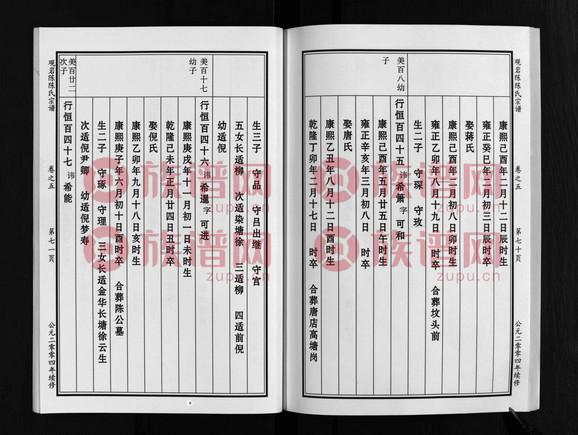 观岩陈陈氏宗谱
卷之五
第七十页
公元二零零四年续修
康熙己酉年二月十二日辰时生
雍正癸巳年二月初三日辰时卒
娶蒋氏
康熙己酉年三月初八日卯时生
雍正乙卯年八月十二日卯时卒 合葬坟头前
生二子 守琛 守玫
美百八幼子
行恒百四十五 讳希箫 字可和
康熙己酉年五月廿五日午时生
雍正辛亥年三月初八日 时卒
娶唐氏
康熙乙丑年八月十二日酉时生
乾隆丁卯年二月十七日 时卒 合葬唐店高塘岗
生三子 守品 守吕出继 守宫
五女长适柳 次适染塘徐 三适柳 四适前倪
幼适倪
美百十七幼子
行恒百四十六 讳希暹 字可进
康熙庚戌年十一月初一日未时生
乾隆己未年正月廿四日丑时卒
娶倪氏
康熙乙卯年九月十八日亥时生
康熙庚子年六月初十日酉时卒 合葬陈公墓
生二子 守琢 守理 三女长适金华长塘徐云生
次适倪尹卿 幼适倪梦寿
美百廿二次子
行恒百四十七 讳希能
观岩陈陈氏宗谱
卷之五
第七一页
公元二零零四年续修
族谱网
zupu.cn
族谱网
zupu.cn
族谱网
zupu.cn
族谱网
zupu.cn